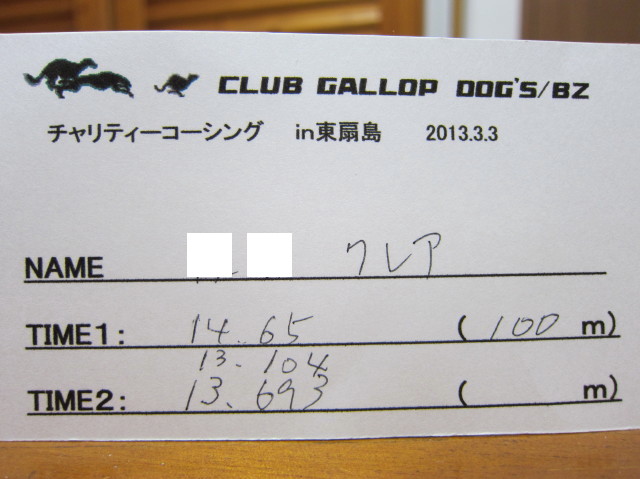 CLUB GALLOP DOG'S/BZ
チャリティーコーシング in東扇島 2013.3.3
NAME クレア
TIME1: 14.65 (100 m)
13.104
TIME2: 13.693 ( m)